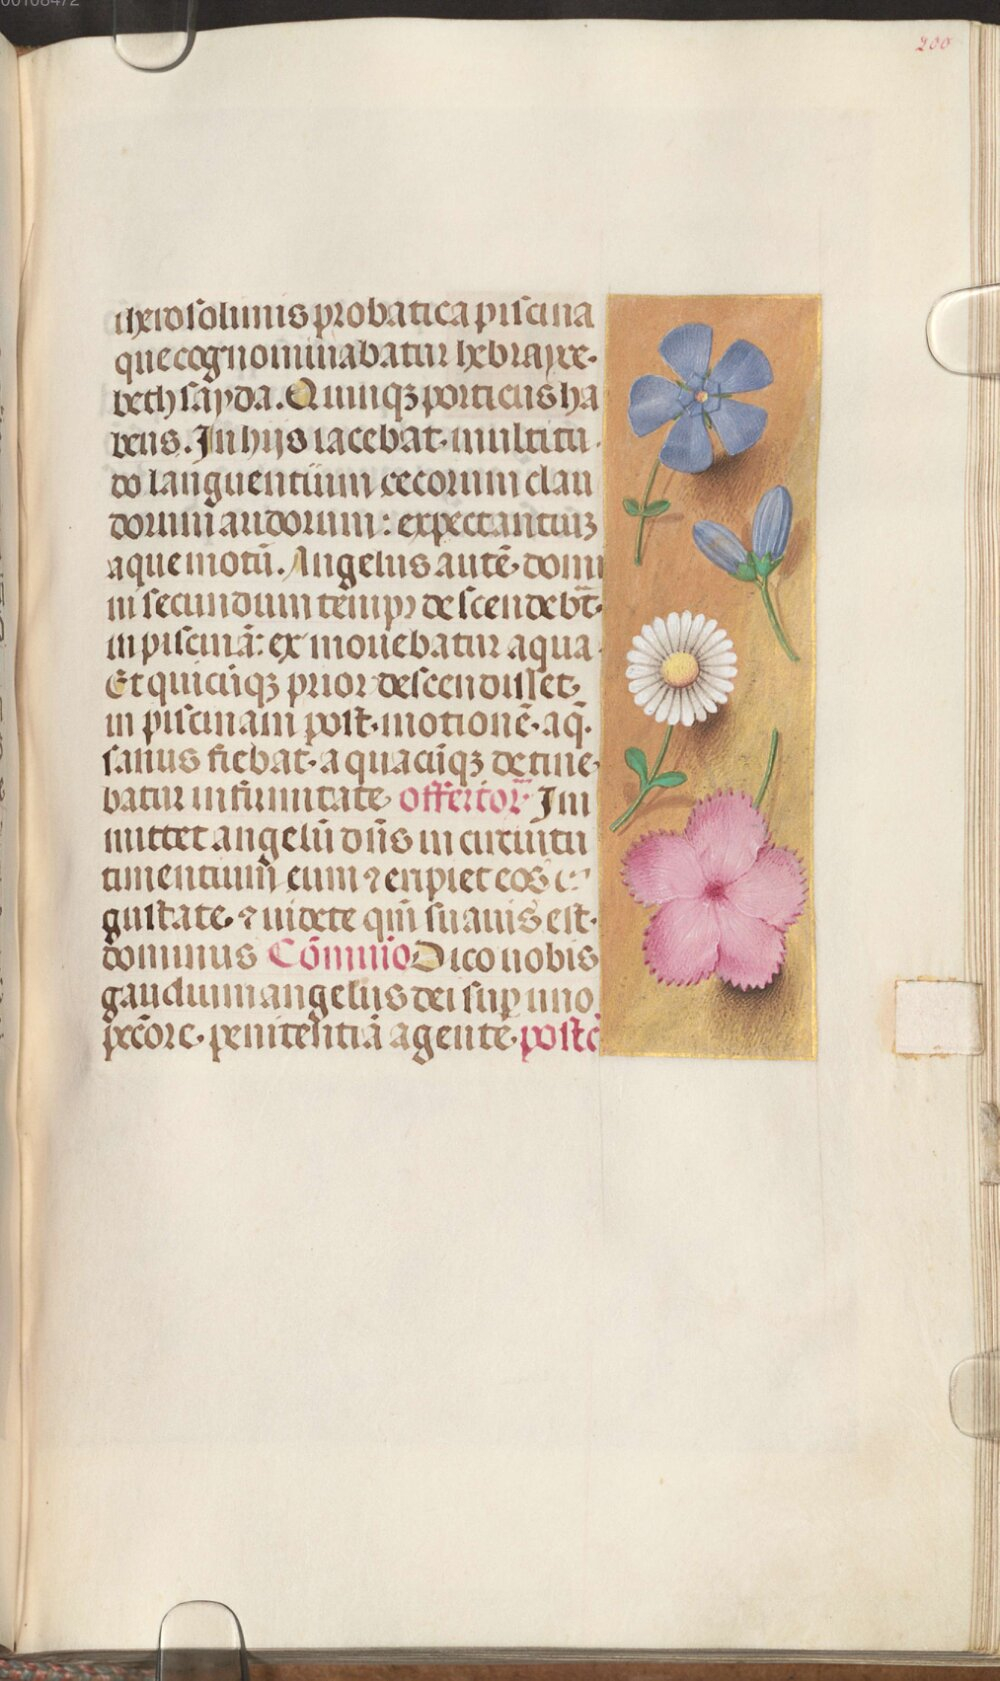 00108472
200
iherosolimis probatica piscina
que cognominabatur hebrayce.
bethsayda. Quinqꝫ porticus ha
bens. In hijs iacebat multitu
do languentium cecorum clau
dorum aridorum: expectantiuꝫ
aque motū. Angelus autē domi
ni secundum tempꝰ descendebt̄
in piscinā: ex mouebatur aqua
Et quicūqꝫ prior descendisset
in piscinam post motionē aq̄.
sanus fiebat a quacūqꝫ detine
batur infirmitate offertor̄ Im
mittet angelū dn̄s in circuitu
timentium eum ⁊ eripiet eos
gustate ⁊ uidete qm̄ suauis est
dominus Cōmnio Dico uobis
gaudium angelis dei suꝑ uno
pec̄ore penitentiā agente postc̄